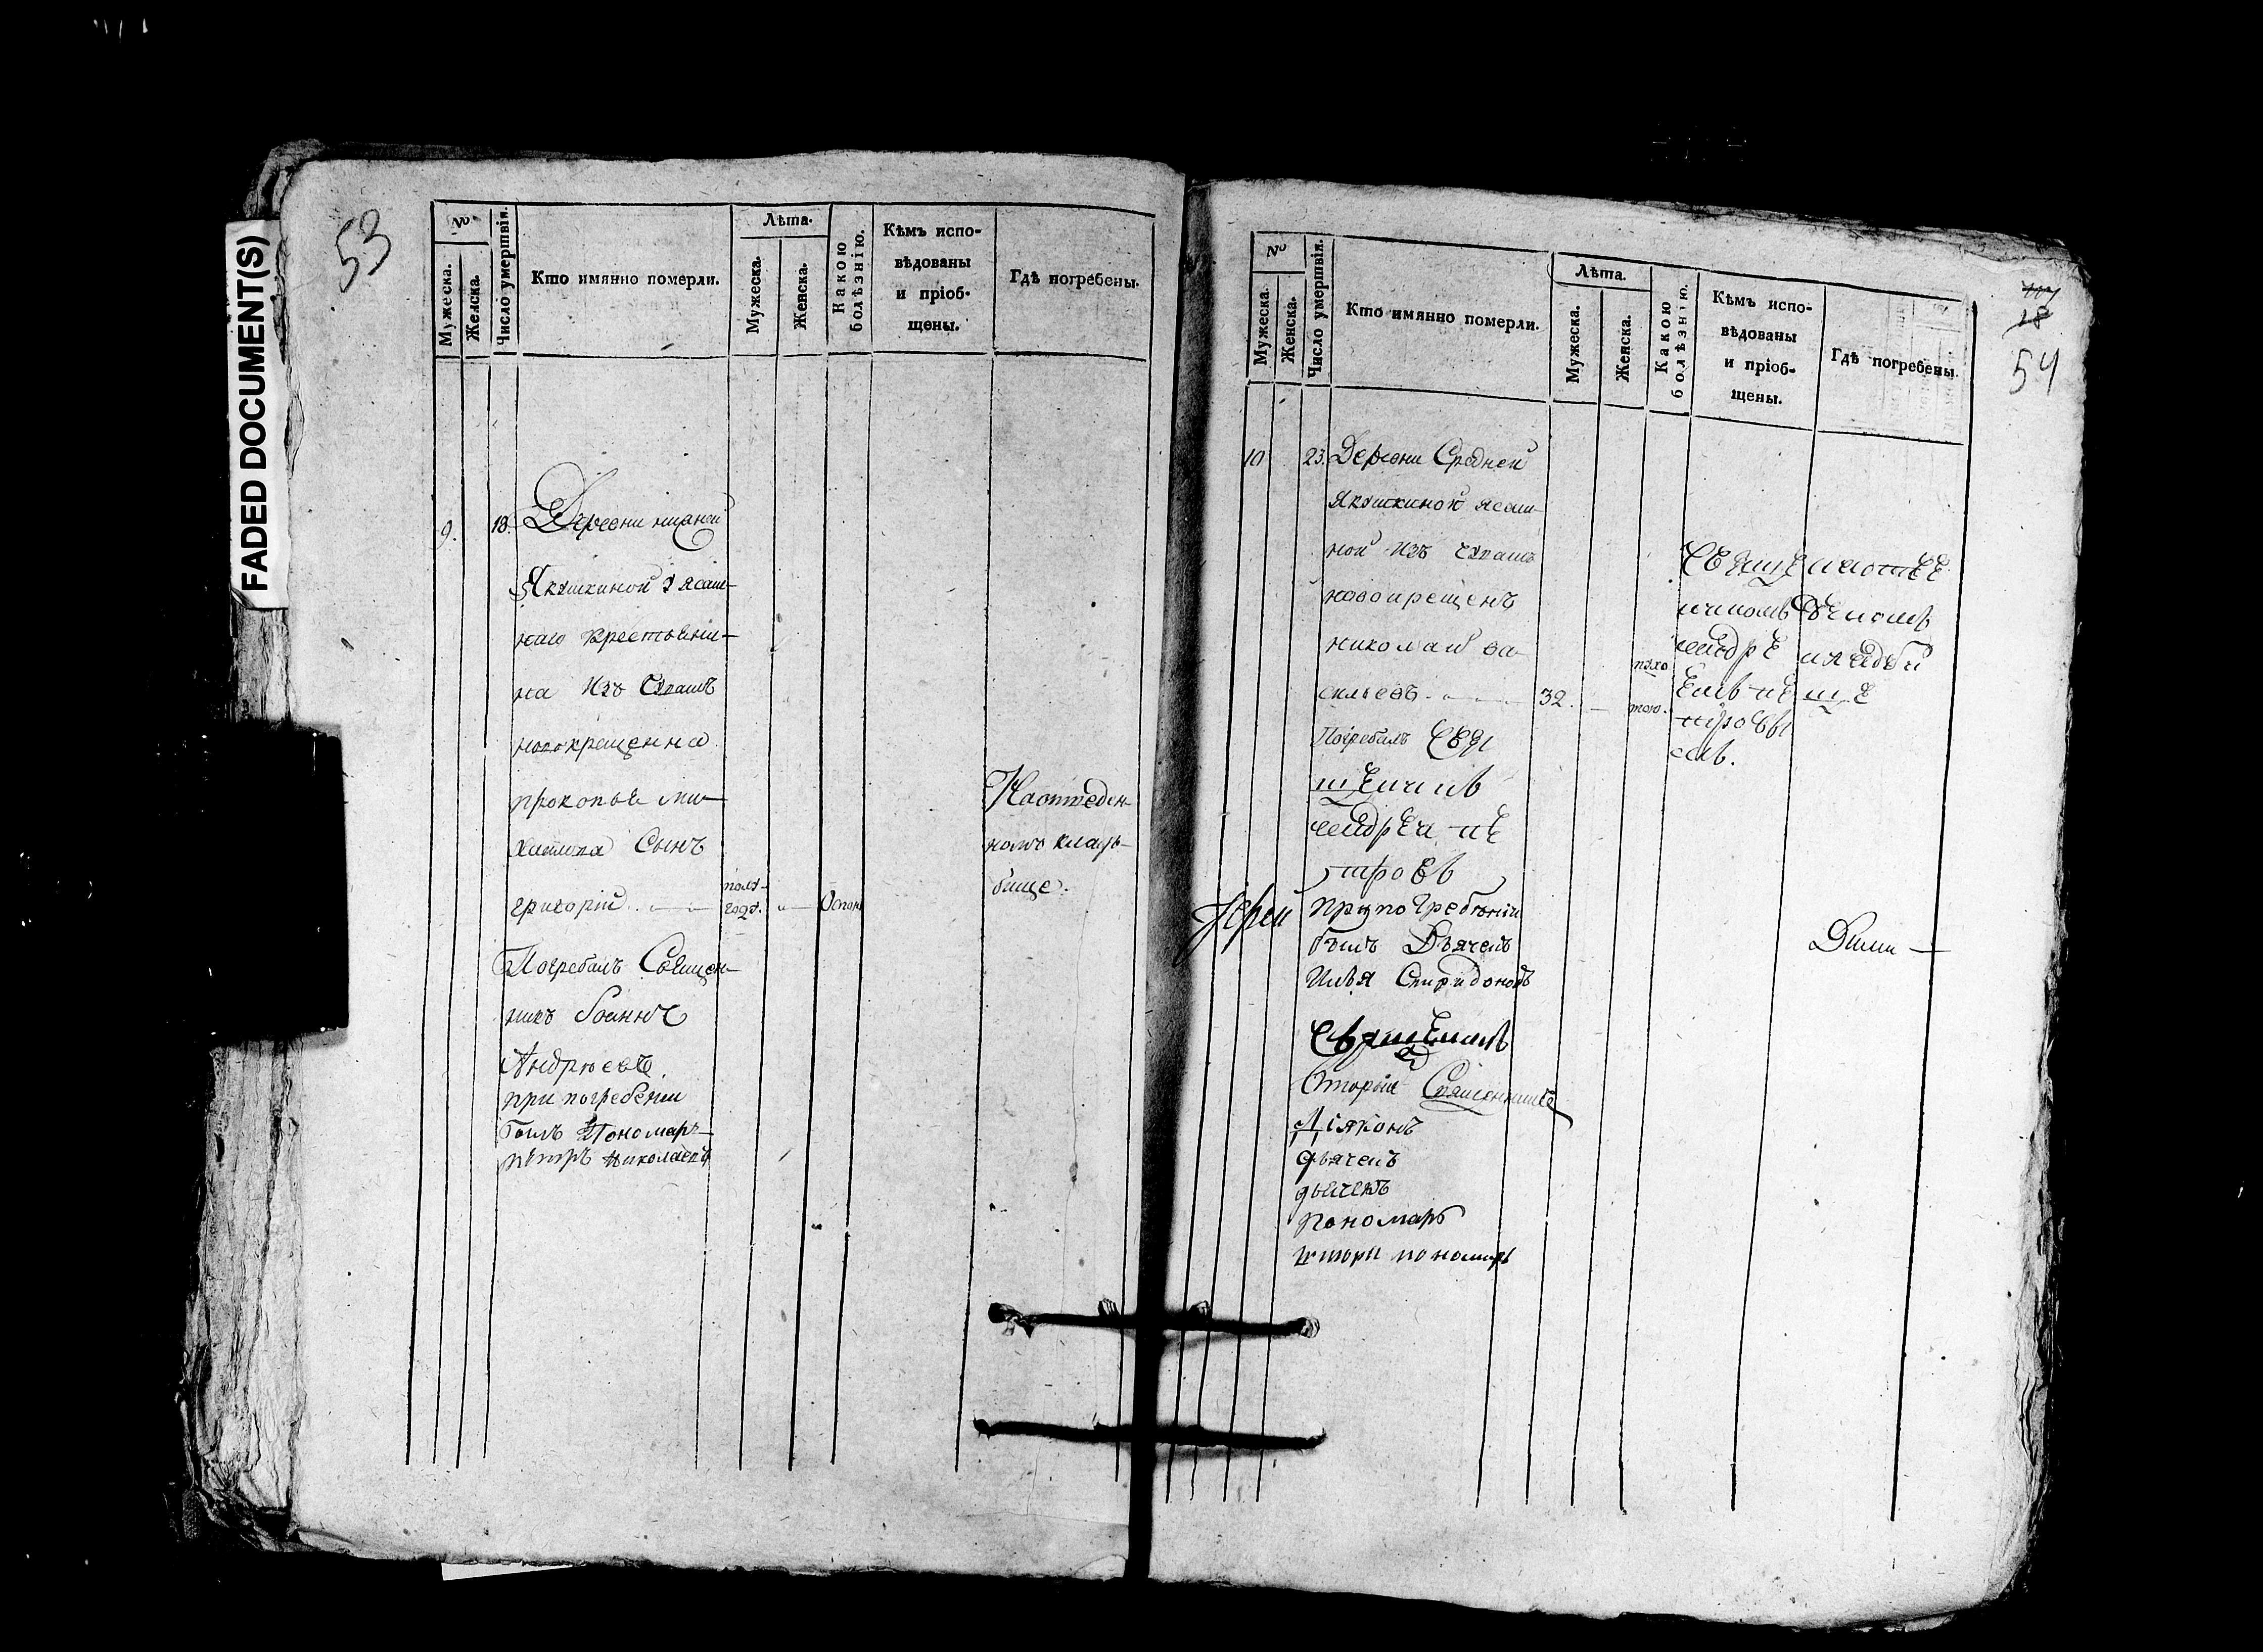 FADED DOCUMENT(S)
53
№
Мужеска.
Женска.
Число умертвія.
Кто имянно померли.
Лѣта.
Мужеска.
Женска.
Какою болѣзнію.
Кѣмъ испо-
вѣдованы
и пріоб-
щены.
Гдѣ погребены.
9.
18.
Деревни нижней
Якушкиной ясаш-
наго крестьяни-
на изъ Чувашъ
новокрещенна
прокопья ми-
хайлова Сынъ
григорій
полу-
года.
Оспою
На отведен-
номъ клад-
бище.
Погребалъ Священ-
никъ Іоаннъ
Андреевъ.
при погребении
былъ Пономарь
петръ николаевъ
№
Мужеска.
Женска.
Число умертвія.
Кто имянно померли.
Лѣта.
Мужеска.
Женска.
Какою болѣзнію.
Кѣмъ испо-
вѣдованы
и пріоб-
щены.
Гдѣ погребены.
18
54
10
23.
Деревни Средней
Якушкиной ясаш-
ной изъ Чувашъ
новокрещенъ
николай ва-
сильевъ
32.
Погребалъ Свя
щенникъ
андрей пе
тровъ
при погребеніи
былъ Дьячекъ
Илья Спиридоновъ
Священникомъ
андре
емъ пе
тровы
емъ.
на отве
деномъ
кладби
ще
Іерей
Дими-
Священникъ
Вторый Священникъ
Діяконъ
дьячекъ
дьячекъ
пономарь
вторй пономарь